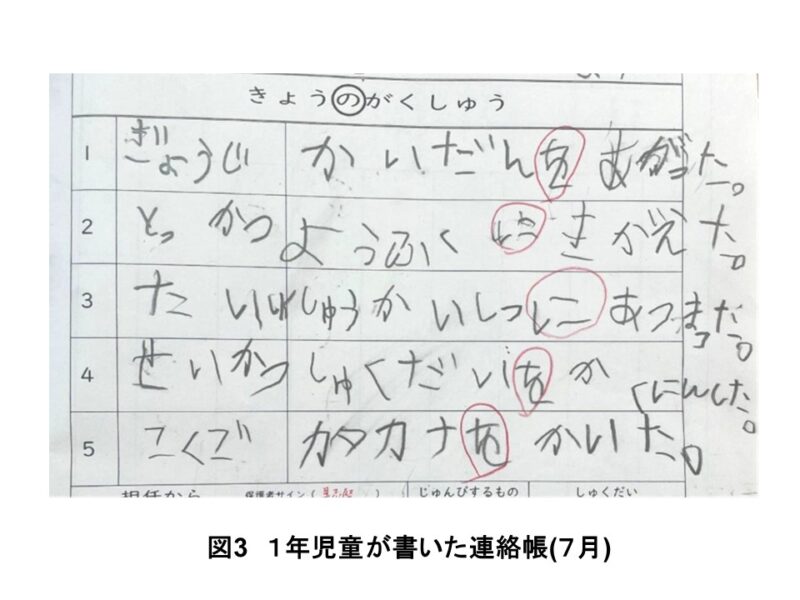 きょうのがくしゅう
1 ぎょうじ かいだんを あがった。
2 とっかつ ようふくに きがえた。
3 たいいく しゅうかいしつに あつまった。
4 せいかつ しゅくだいを かくにんした。
5 こくご カタカナを かいた。
担任から 保護者サイン( ) じゅんびするもの しゅくだい
図3 1年児童が書いた連絡帳(7月)